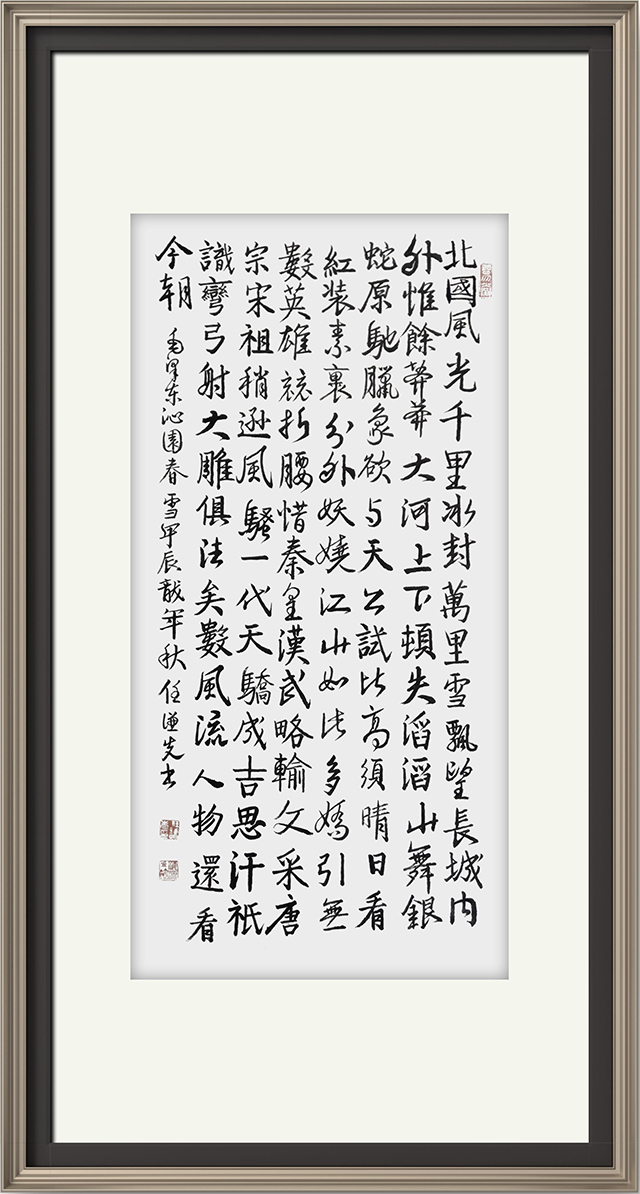 北國風光千里冰封萬里雪飄望長城内
外惟餘莽莽大河上下頓失滔滔山舞銀
蛇原馳臘象欲与天公試比高須晴日看
紅装素裹分外妖嬈江山如此多嬌引無
數英雄競折腰惜秦皇漢武略輸文采唐
宗宋祖稍遜風騷一代天驕成吉思汗祇
識彎弓射大雕俱往矣數風流人物還看
今朝 毛泽东沁園春雪甲辰龍年秋任谦先书